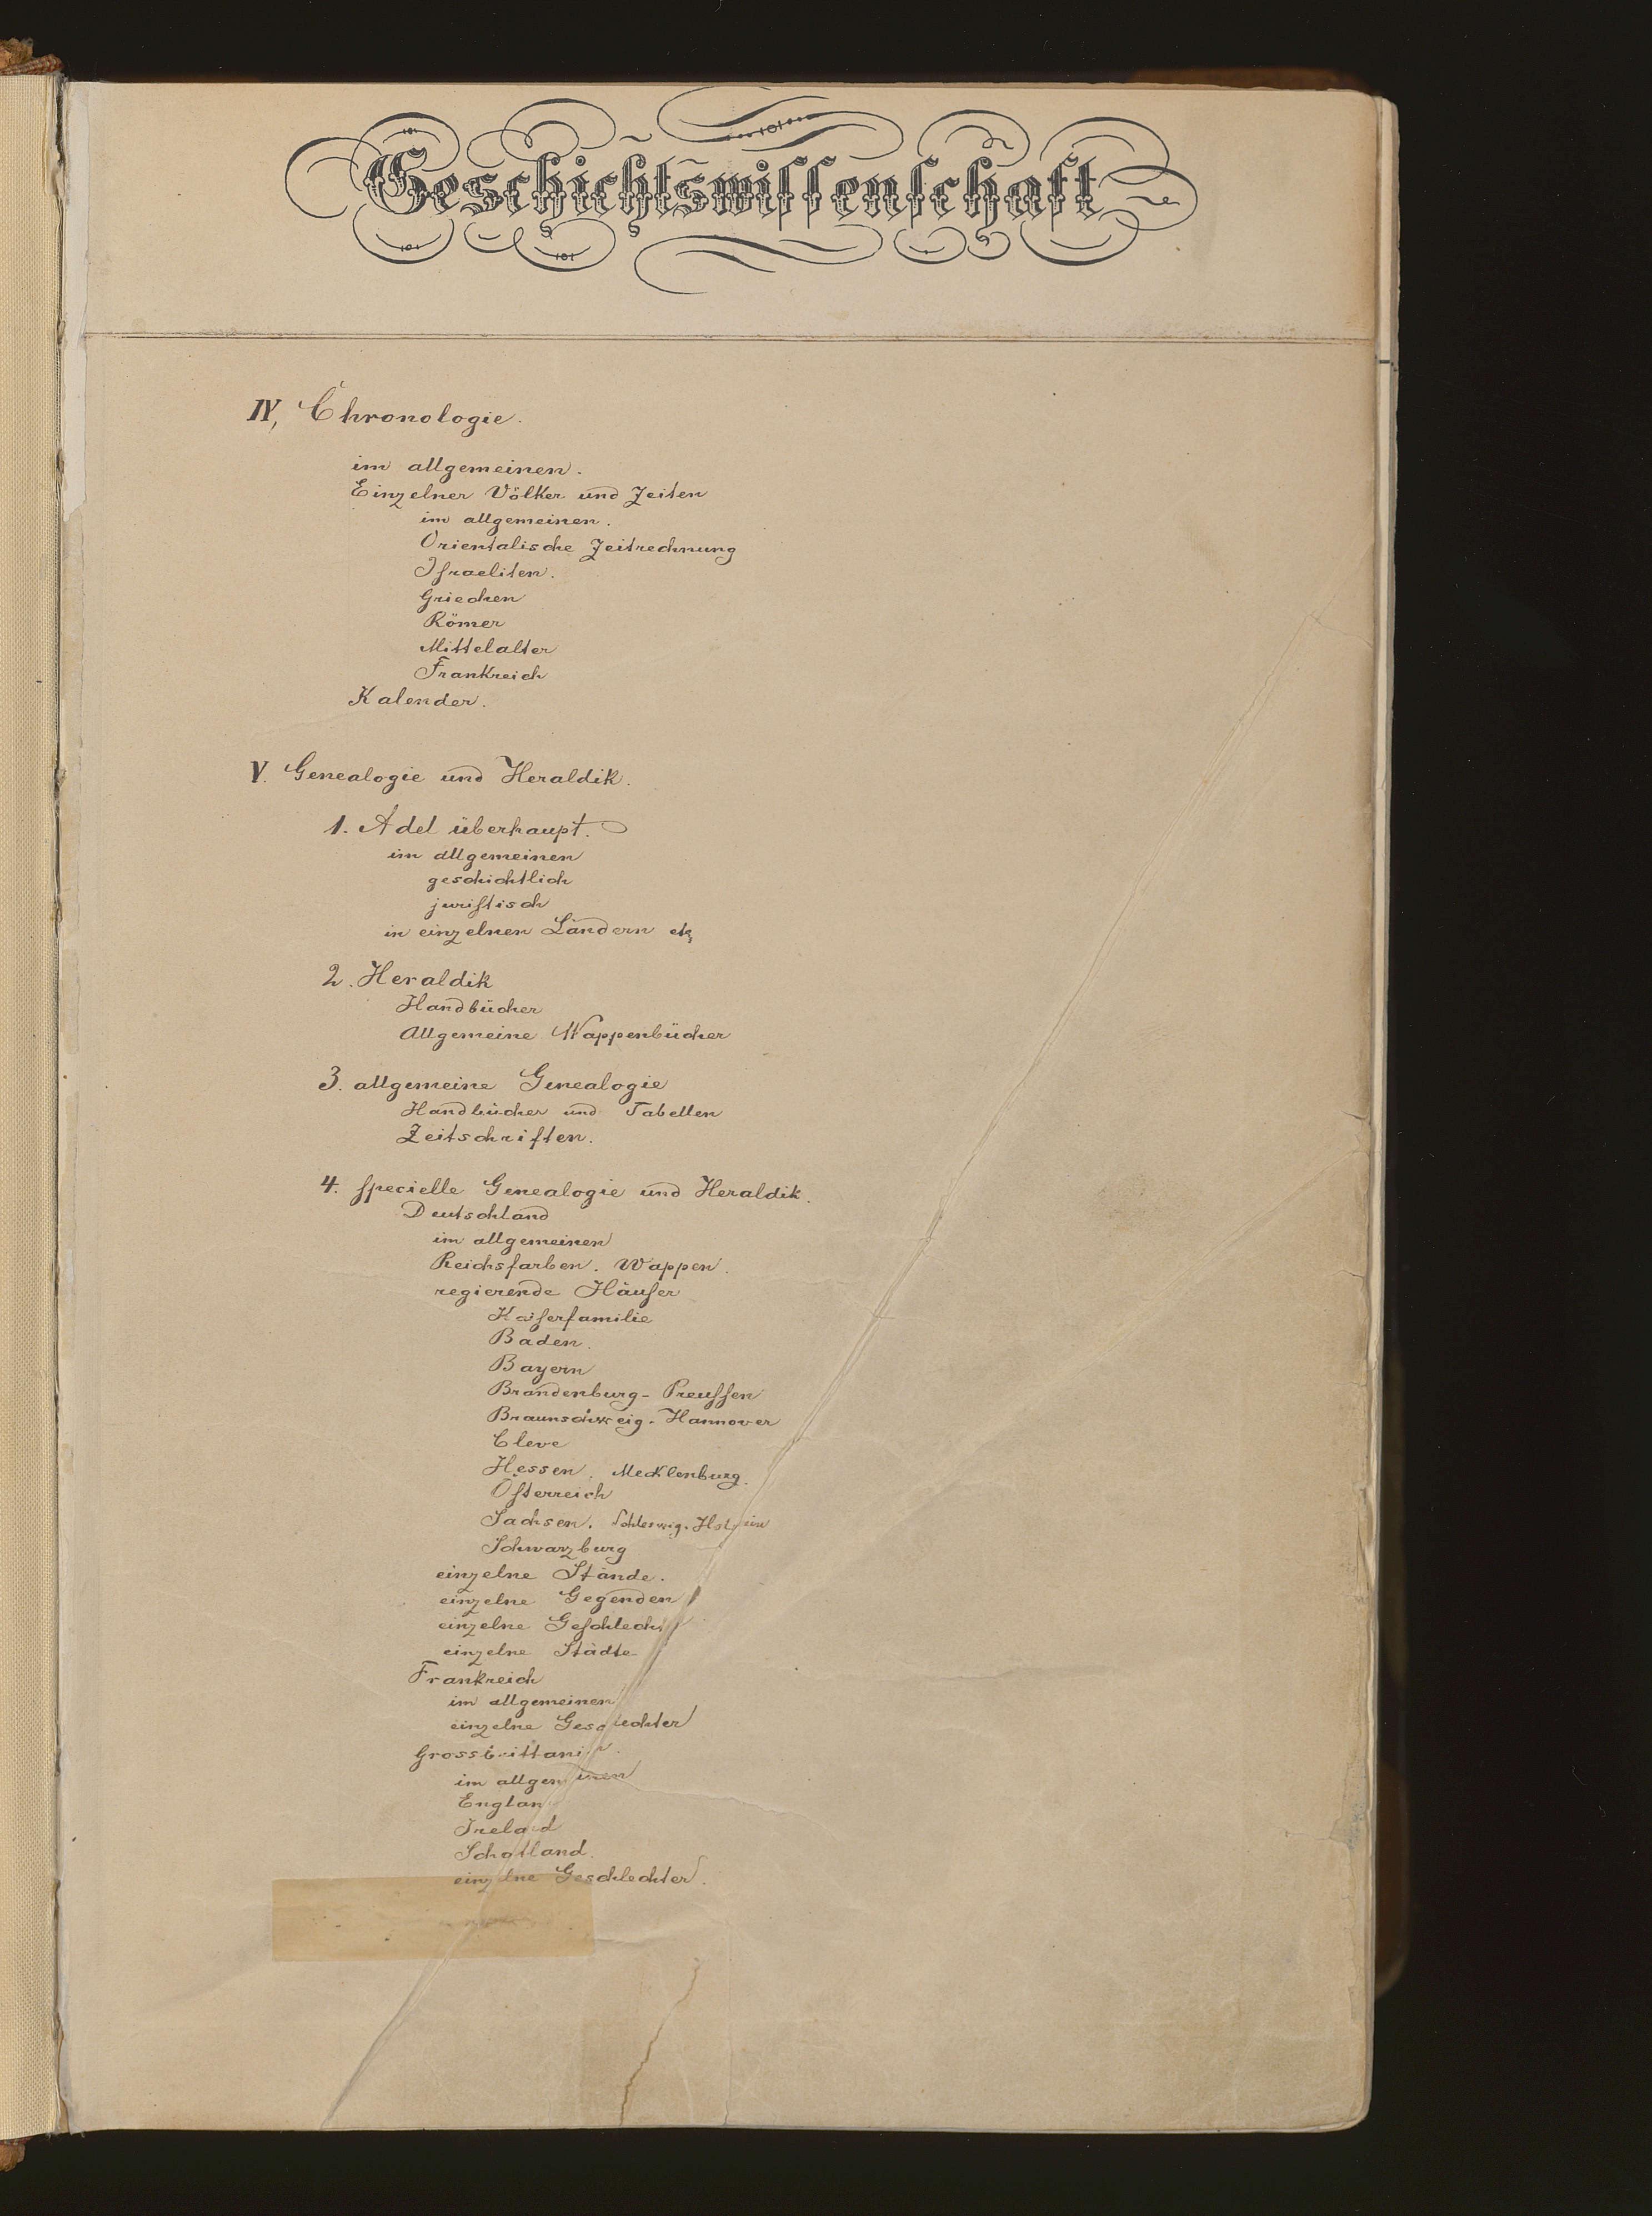 Geschichtswiſſenſchaft
IV, Chronologie.
im allgemeinen.
Einzelner Völker und Zeiten
im allgemeinen.
Orientalische Zeitrechnung
Iſraeliten.
Griechen
Römer
Mittelalter
Frankreich
Kalender.
V. Genealogie und Heraldik.
1. Adel überhaupt.
im allgemeinen
geschichtlich
juriſtisch
in einzelnen Ländern etz
2. Heraldik
Handbücher
Allgemeine Wappenbücher
3. allgemeine Genealogie
Handbücher und Tabellen
Zeitschriften.
4. ſpecielle Genealogie und Heraldik.
Deutschland
im allgemeinen
Reichsfarben. Wappen.
regierende Häuſer
Kaiſerfamilie
Baden.
Bayern
Brandenburg-Preuſſen
Braunschweig-Hannover
Cleve
Hessen. Mecklenburg.
Öſterreich
Sachsen. Schleswig-Holstein
Schwarzburg
einzelne Stände.
einzelne Gegenden
einzelne Geſchlecht
einzelne Städte
Frankreich
im allgemeinen
einzelne Geschlechter
Grossbrittanien.
im allgemeinen
England
Ireland
Schotland.
einzelne Geschlechter.